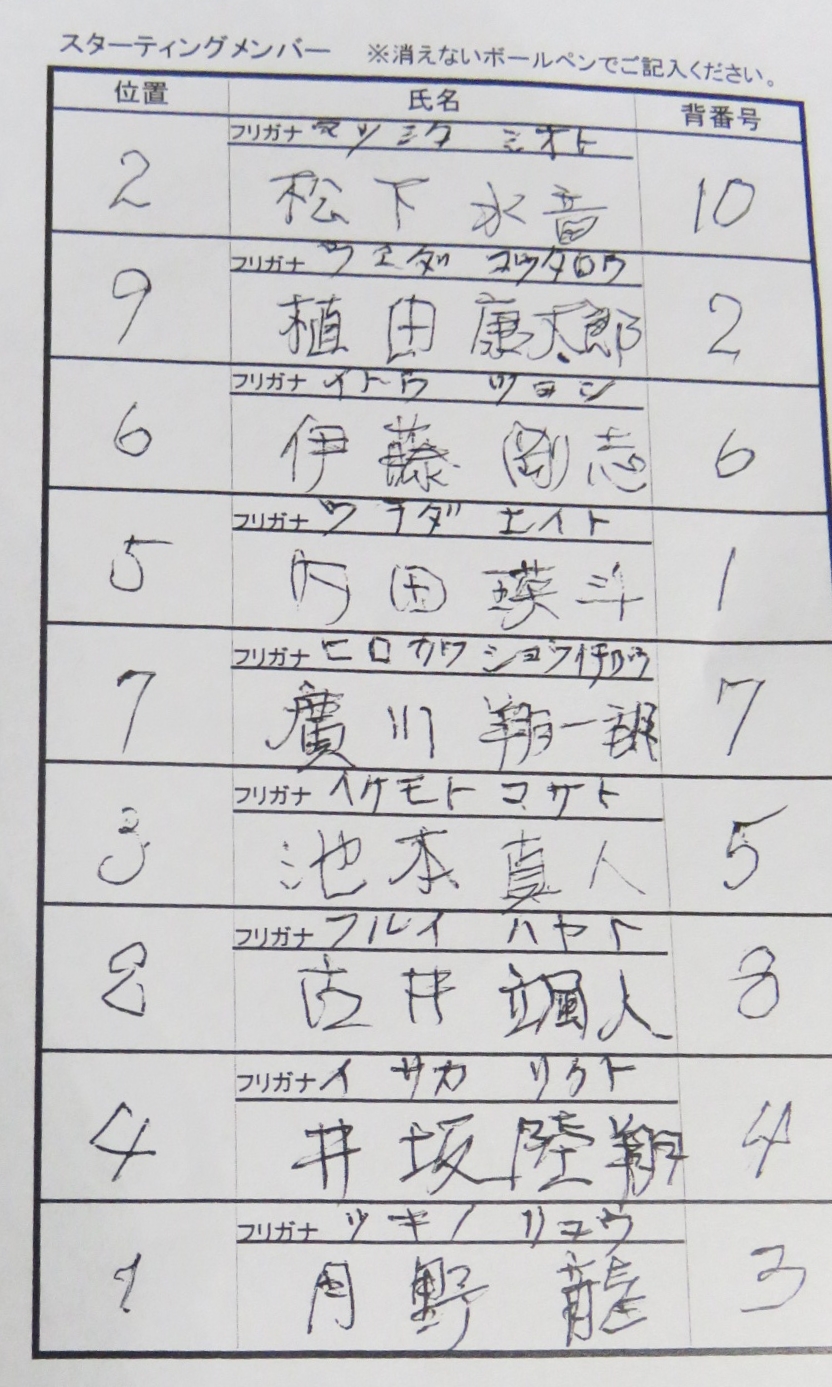 スターティングメンバー　※消えないボールペンでご記入ください。
位置 氏名 背番号
フリガナ マツシタ ミオト
2 松下 水音 10
フリガナ ウエダ コウタロウ
9 植田 康太郎 2
フリガナ イトウ ツヨシ
6 伊藤 剛志 6
フリガナ ウチダ エイト
5 内田 瑛斗 1
フリガナ ヒロカワ ショウイチロウ
7 廣川 翔一朗 7
フリガナ イケモト マサト
3 池本 真人 5
フリガナ フルイ ハヤト
8 古井 颯人 8
フリガナ イサカ リクト
4 井坂 陸翔 4
フリガナ ツキノ リュウ
1 月野 龍 3